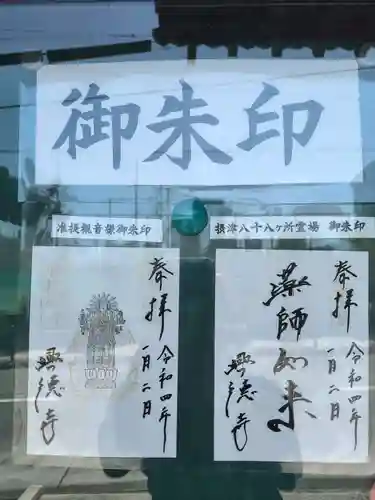 御朱印
准提観音様御朱印
奉拝
令和四年
一月二日
興徳寺
摂津八十八ヶ所霊場 御朱印
奉拝
令和四年
一月二日
薬師如来
興徳寺